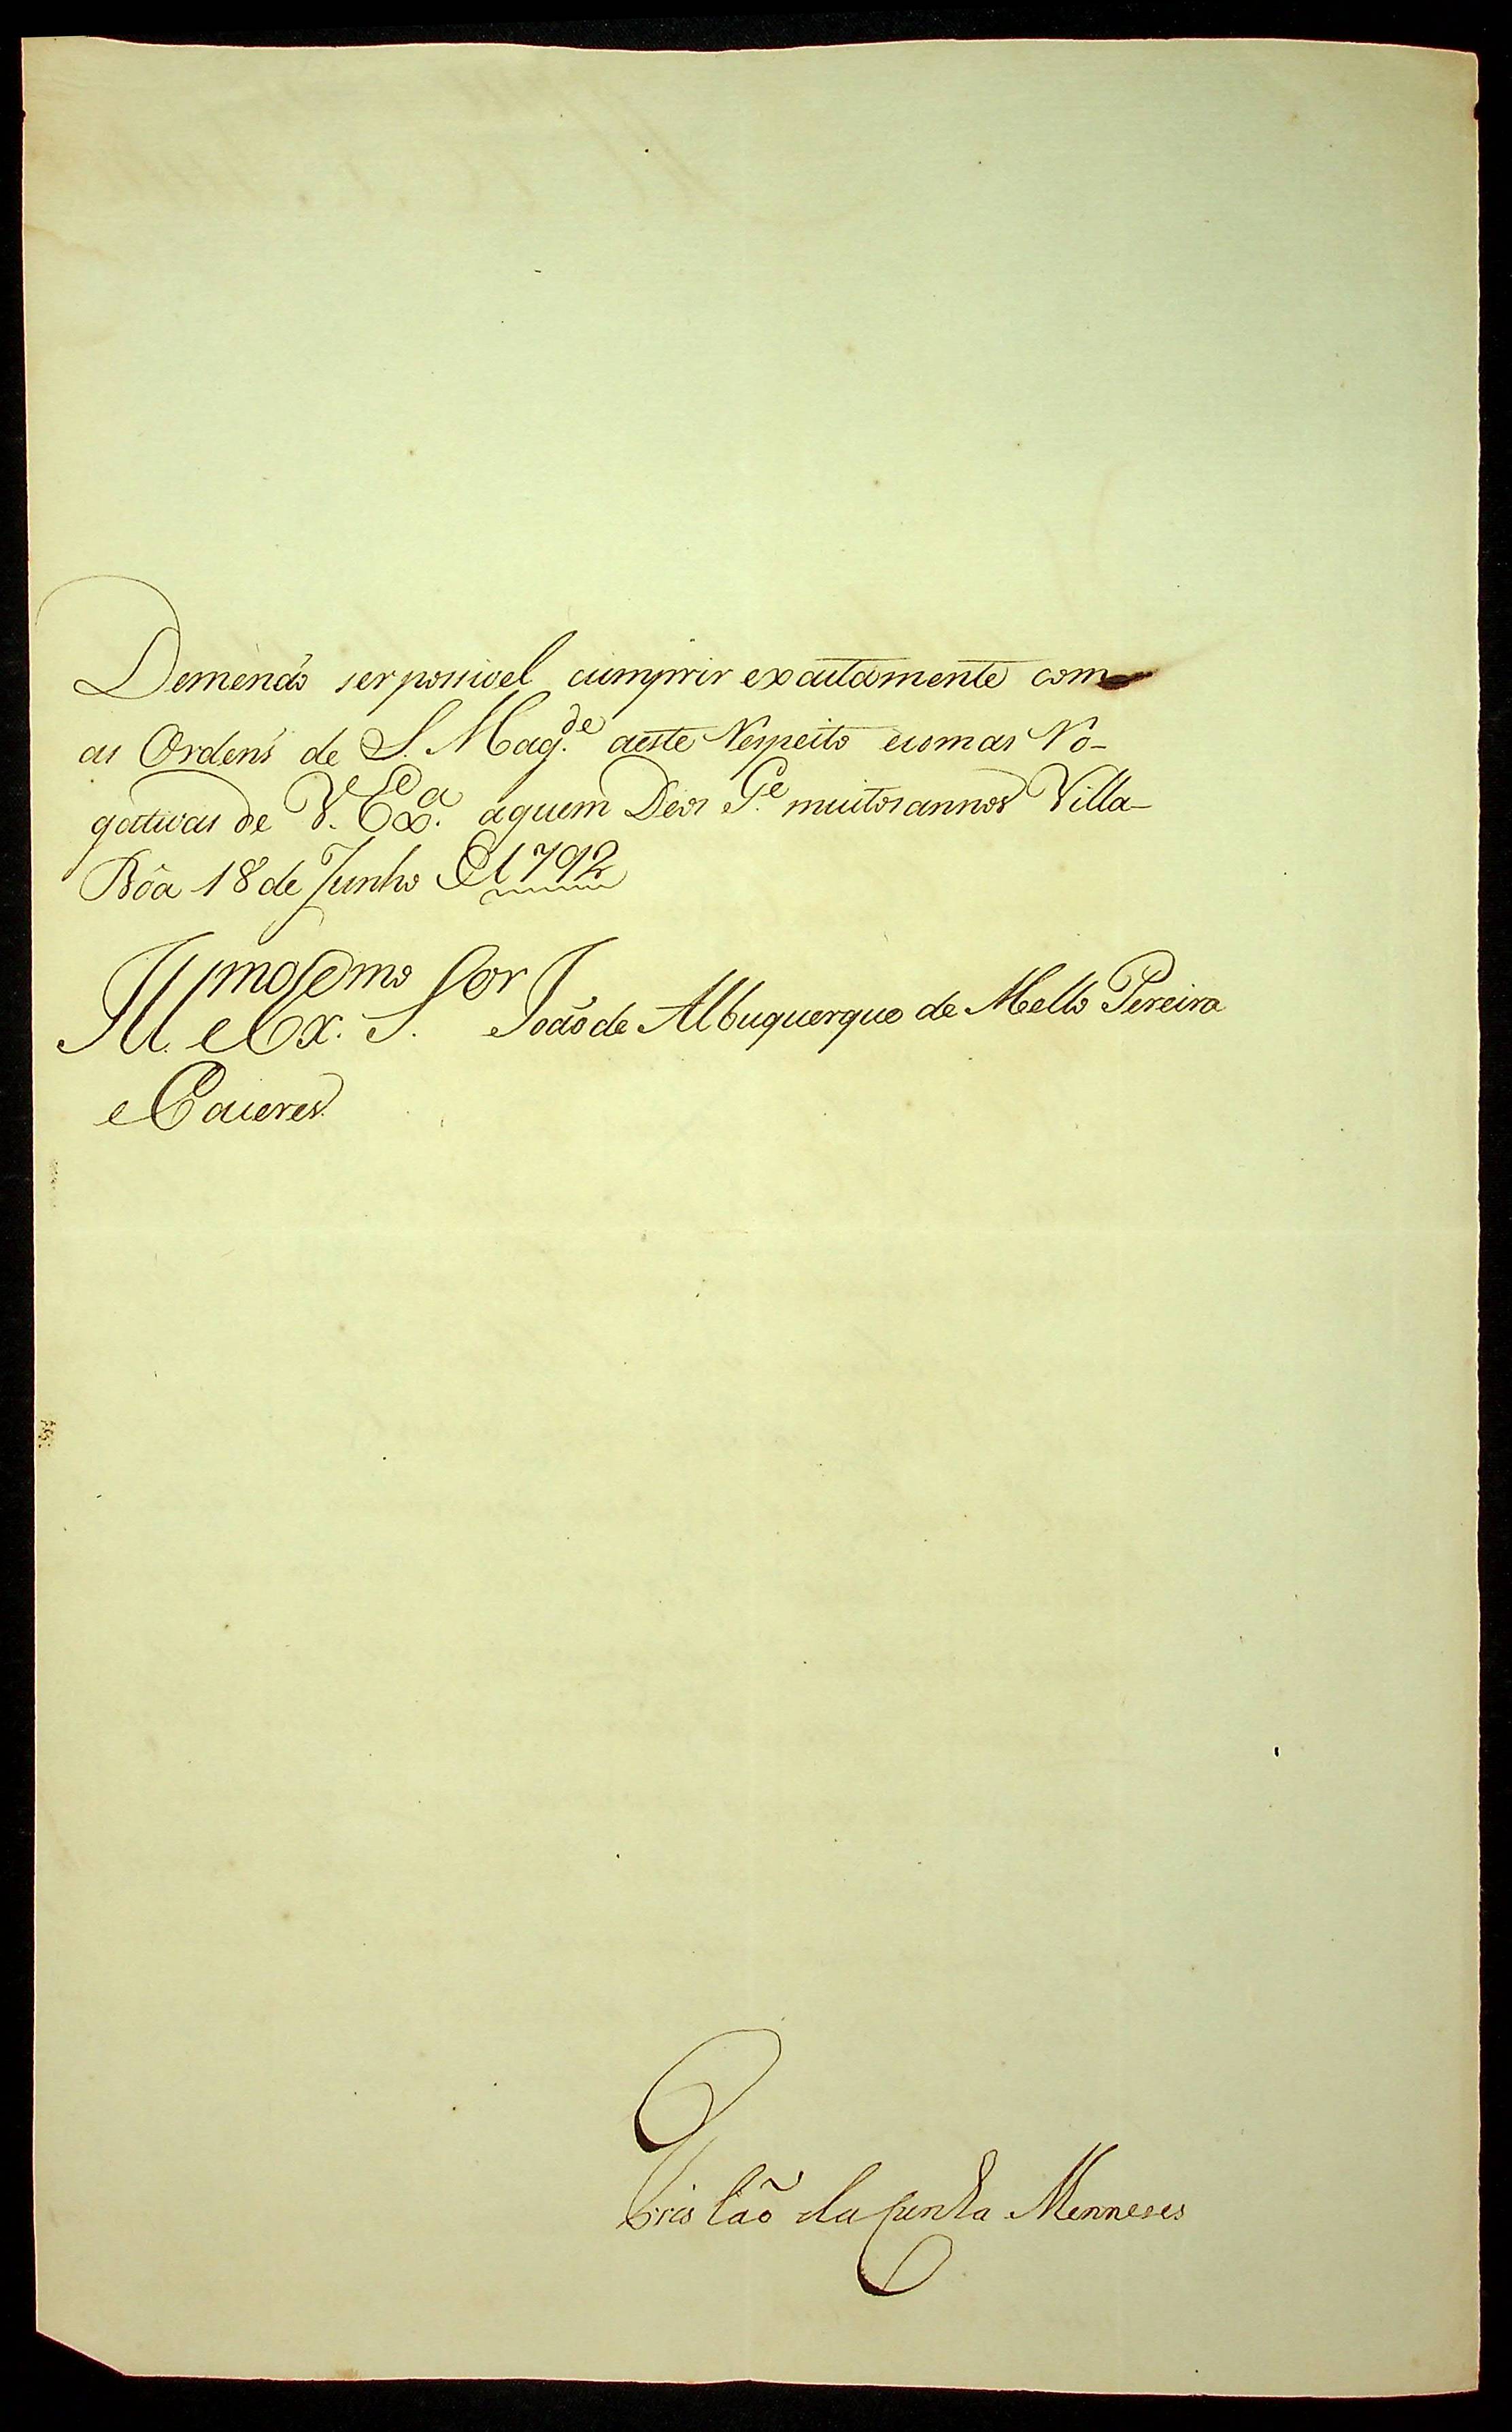 Demenáo ser possivel cumprir exactamente com
as Ordens de S. Mag.de aeste Respeito ecomas Ro-
gativas de V. Ex.a aquem Deos G.e muitos annos Villa-
Bôa 18 de Junho de 1792
Ill.mo e Ex.mo S.or João de Albuquerque de Mello Pereira
e Caceres.
Tristão da Cunha Menneses